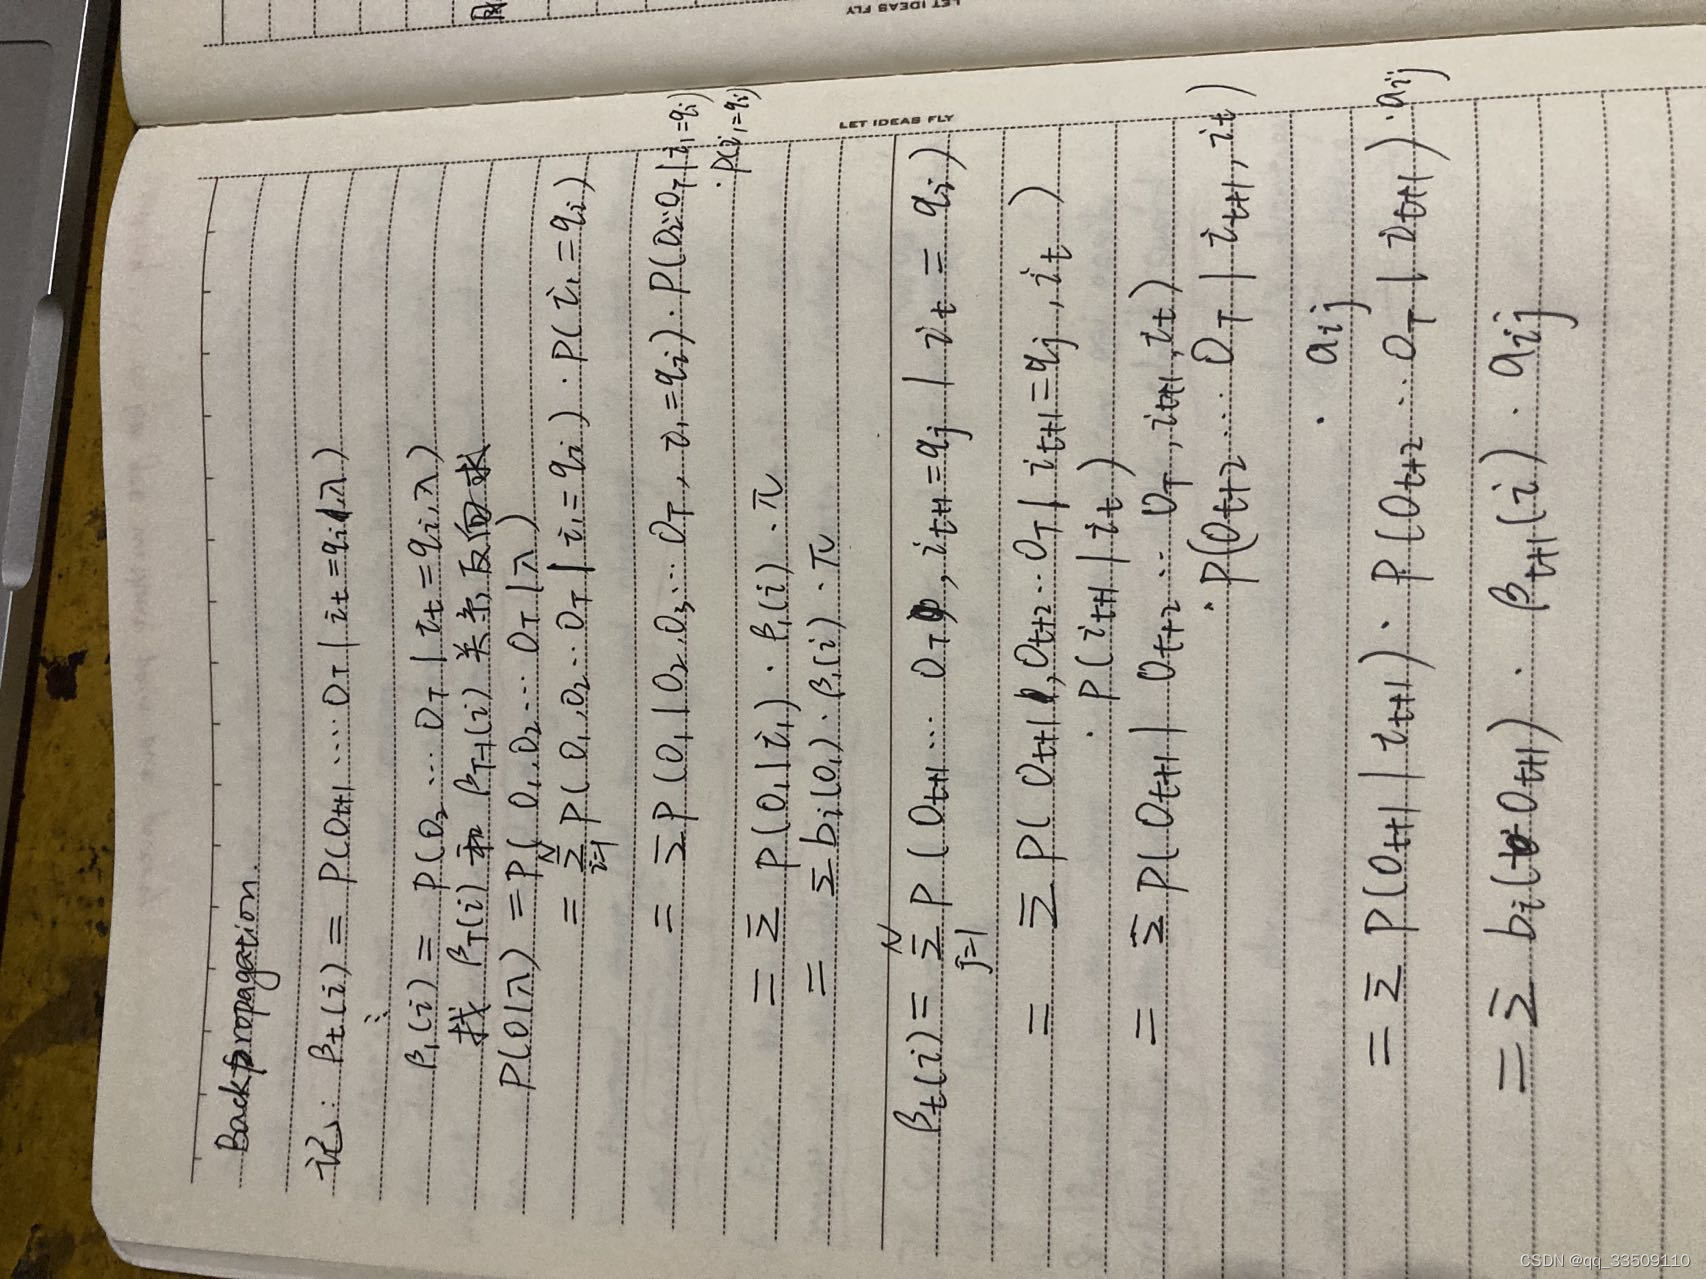 LET IDEAS FLY
LET IDEAS FLY
Backpropagation.
记: βt(i) = P(Ot+1 ... OT | it = qi, λ)
⋮
β1(i) = P(O2 ... OT | it = qi, λ)
找 βT(i) 和 βT-1(i) 关系, 反向求
P(O|λ) = P(O1, O2 ... OT | λ)
= Σ i=1 N P(O1, O2 ... OT | i1 = qi) · P(i1 = qi)
= Σ P(O1 | O2, O3, ... OT, i1 = qi) · P(O2 ... OT | i1 = qi)
· P(i1 = qi)
= Σ P(O1 | i1) · β1(i) · π
= Σ bi(O1) · β1(i) · π
βt(i) = Σ j=1 N P(Ot+1 ... OT, it+1 = qj | it = qi)
= Σ P(Ot+1, Ot+2 ... OT | it+1 = qj, it)
· P(it+1 | it)
= Σ P(Ot+1 | Ot+2 ... OT, it+1, it)
· P(Ot+2 ... OT | it+1, it)
· aij
= Σ P(Ot+1 | it+1) · P(Ot+2 ... OT | it+1) · aij
= Σ bi(Ot+1) · βt+1(i) · aij
CSDN @qq_33509110